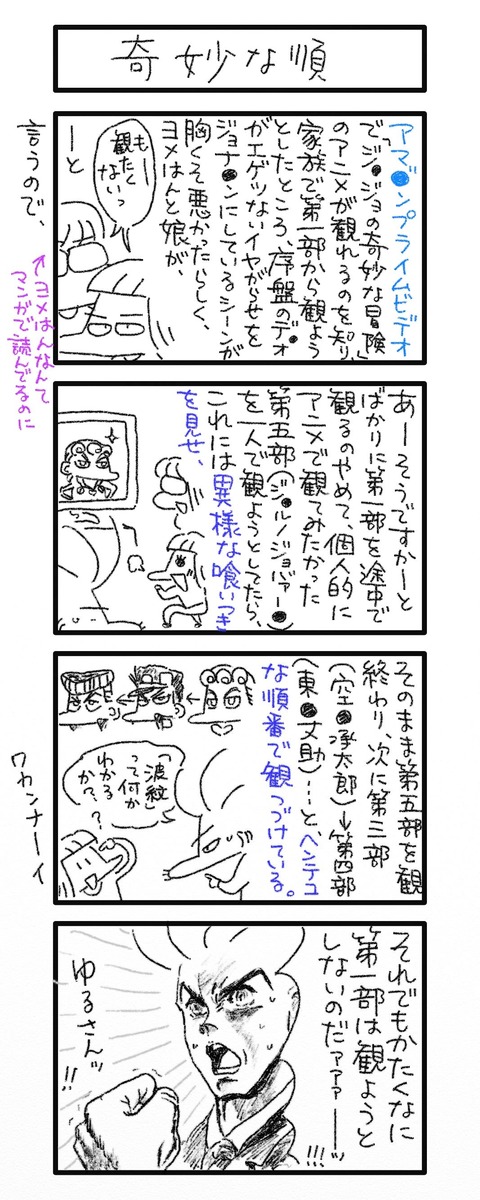 奇妙な順
アマ●ンプライムビデオ
で「ジ●ジョの奇妙な冒険」
のアニメが観れるのを知り、
家族で第一部から観よう
としたところ、序盤のデ●オ
がエゲツないイヤがらせを
ジョナ●ンにしているシーンが
胸くそ悪かったらしく、
ヨメはんと娘が、
もー
観たく
ないっ
ーと
言うので、
↑ヨメはんなんて
マンガで読んでるのに
あーそうですかーと
ばかりに第一部を途中で
観るのやめて、個人的に
アニメで観てみたかった
第五部(ジ●ルノジョバァー●)
を一人で観ようとしてたら、
これには異様な喰いつき
を見せ、
そのまま第五部を観
終わり、次に第三部
(空●承太郎)→第四部
(東●丈助)…と、ヘンテコ
な順番で観つづけている。
「波紋」
って何か
わかる
か??
ワカンナーイ
それでもかたくなに
第一部は観ようと
しないのだァァァーーッ!!!
ゆるさんッ!!